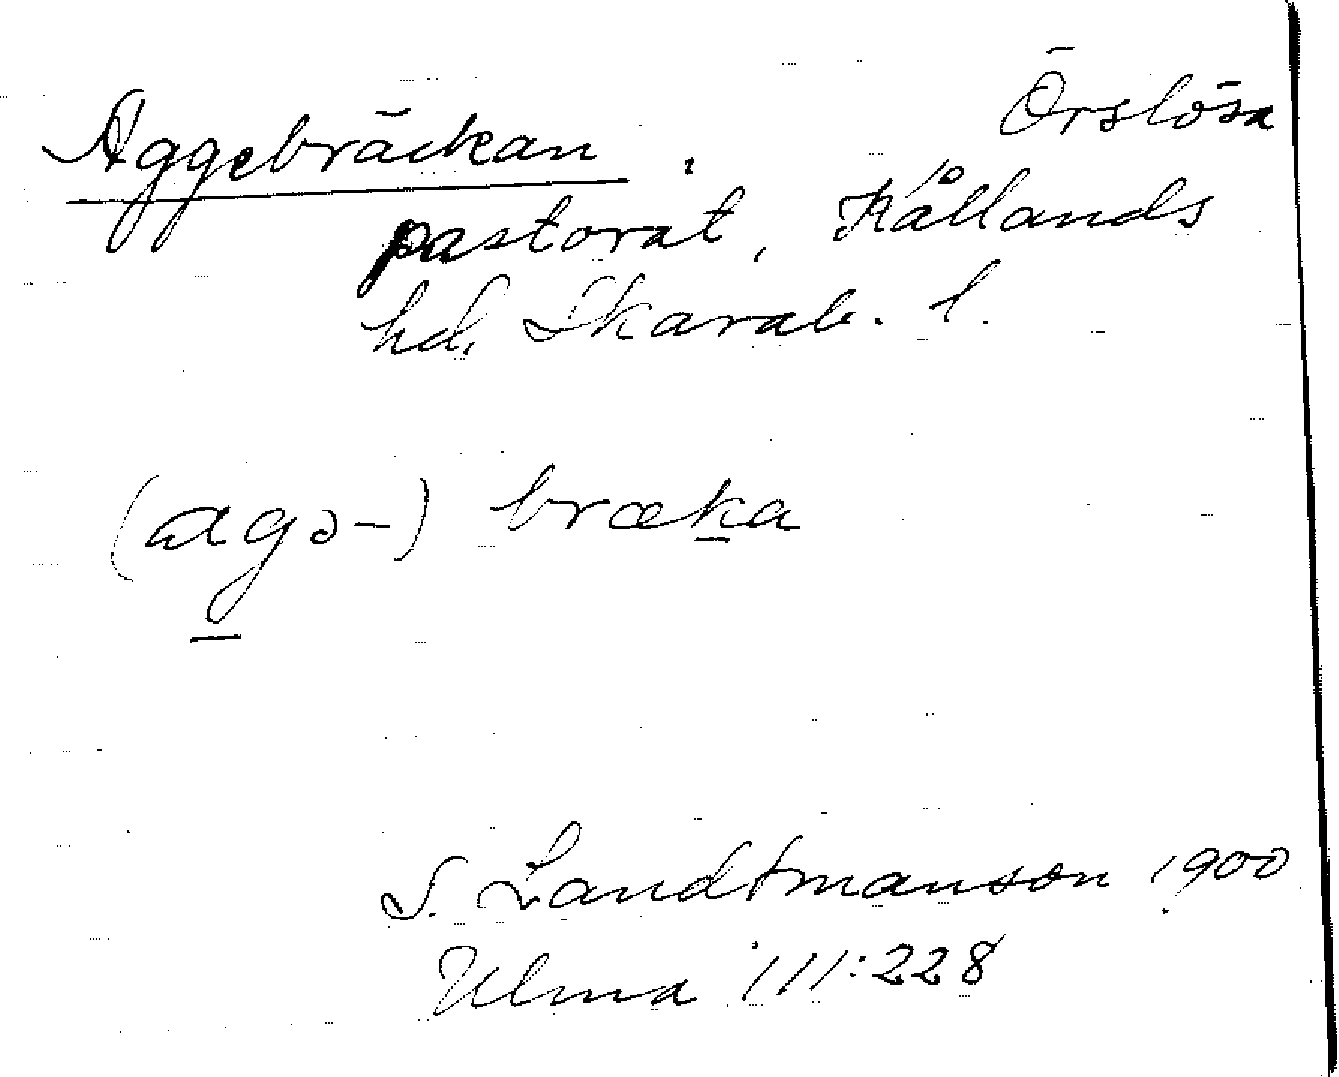 Aggebräckan. Örslösa
pastorat, Kållands
hd, Skarab. l.
(agə-) bræka
S. Landtmanson 1900
Ulma 111:228